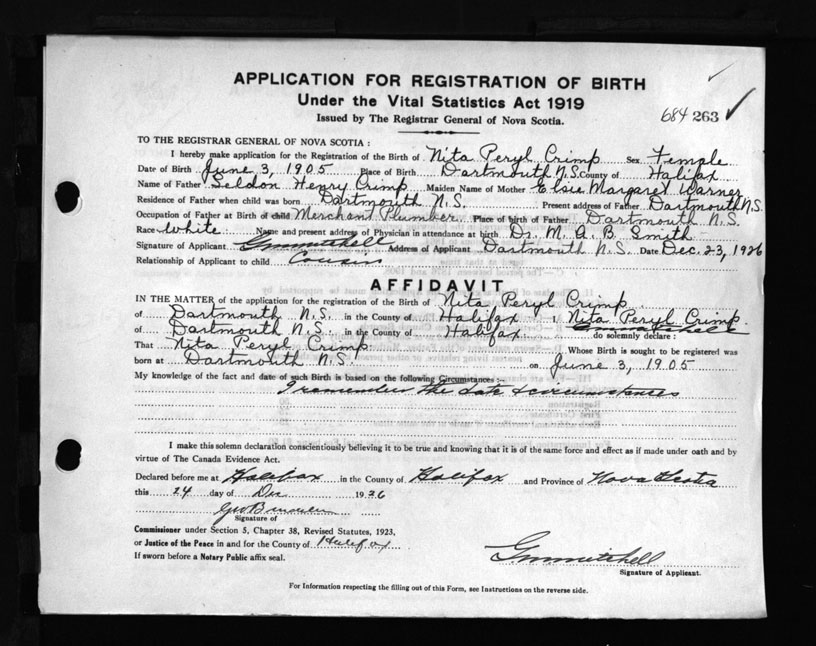 APPLICATION FOR REGISTRATION OF BIRTH
Under the Vital Statistics Act 1919
Issued by The Registrar General of Nova Scotia.
684 263
TO THE REGISTRAR GENERAL OF NOVA SCOTIA :
I hereby make application for the Registration of the Birth of Nita Peryl Crimp Sex Female
Date of Birth June 3, 1905 Place of Birth Dartmouth N.S. County of Halifax
Name of Father Seldon Henry Crimp Maiden Name of Mother Elsie Margaret Warner
Residence of Father when child was born Dartmouth N.S. Present address of Father Dartmouth N.S.
Occupation of Father at Birth of child Merchant Plumber Place of birth of Father Dartmouth N.S.
Race White : Name and present address of Physician in attendance at birth Dr. M. A. B. Smith
Signature of Applicant Gmmitchell Address of Applicant Dartmouth N.S. Date Dec. 23, 1926
Relationship of Applicant to child Cousin
AFFIDAVIT
IN THE MATTER of the application for the registration of the Birth of Nita Peryl Crimp
of Dartmouth N.S. in the County of Halifax I, Nita Peryl Crimp
of Dartmouth N.S. in the County of Halifax do solemnly declare :
That Nita Peryl Crimp Whose Birth is sought to be registered was
born at Dartmouth N.S. on June 3, 1905
My knowledge of the fact and date of such Birth is based on the following Circumstances :-
I remember the date & circumstances
I make this solemn declaration conscientiously believing it to be true and knowing that it is of the same force and effect as if made under oath and by
virtue of The Canada Evidence Act.
Declared before me at Halifax in the County of Halifax and Province of Nova Scotia
this 24 day of Dec 1926
Signature of
Commissioner under Section 5, Chapter 38, Revised Statutes, 1923,
or Justice of the Peace in and for the County of Halifax
If sworn before a Notary Public affix seal.
Gmmitchell
Signature of Applicant.
For Information respecting the filling out of this Form, see Instructions on the reverse side.